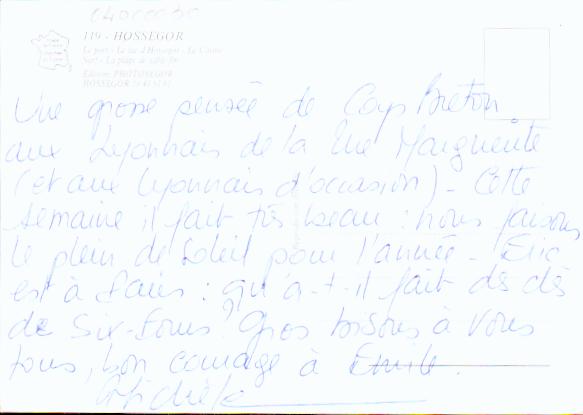 119 - HOSSEGOR
Le port - Le lac d'Hossegor - Le Casino
Surf - La plage de sable fin
Editions PHOTOSEGOR
HOSSEGOR
Une grosse pensée de Cap Breton
aux Lyonnais de la rue Marguerite
(et aux lyonnais d'occasion) - Cette
semaine il fait très beau : nous faisons
le plein de soleil pour l'année - Eric
est à Paris : qu'a-t-il fait des clés
de Six-Fours ? Gros bisous à vous
tous, bon courage à Emile.
Michèle